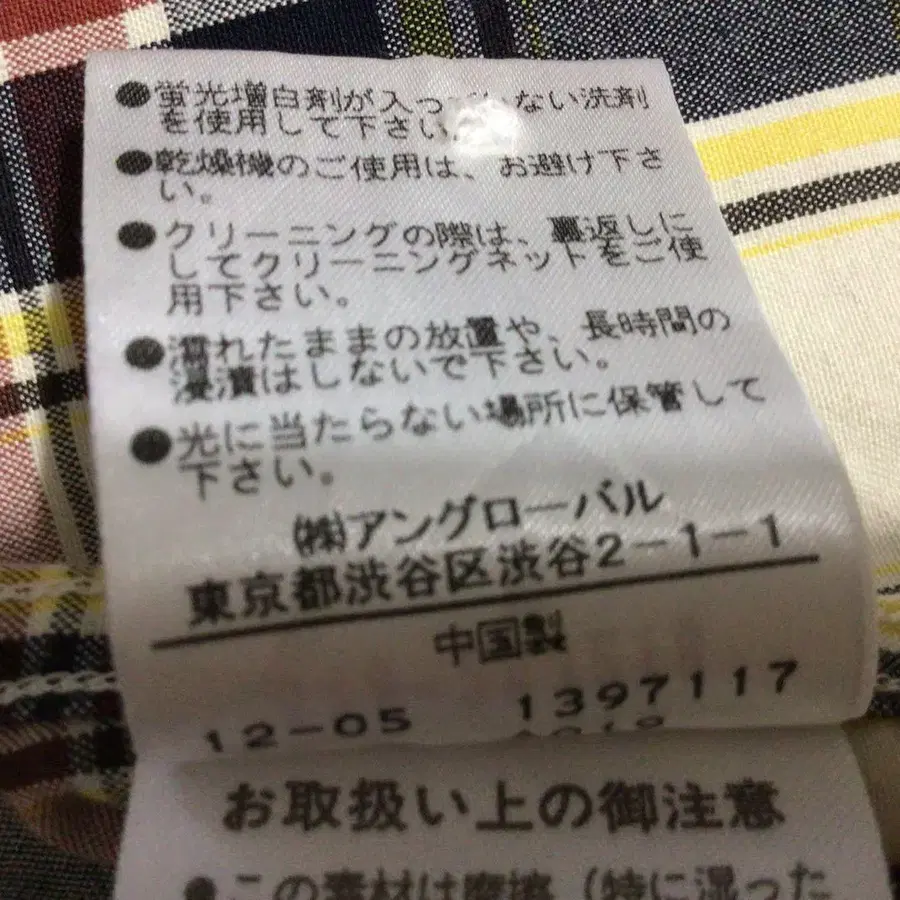 ●蛍光増白剤が入っ ない洗剤
を使用して下さい
●乾燥機のご使用は、お避け下さ
い。
●クリーニングの際は、裏返しに
してクリーニングネットをご使
用下さい。
●濡れたままの放置や、長時間の
浸漬はしないで下さい。
●光に当たらない場所に保管して
下さい。
㈱アングローバル
東京都渋谷区渋谷2-1-1
中国製
12-05 1397117
お取扱い上の御注意
●この素材は摩擦（特に湿った